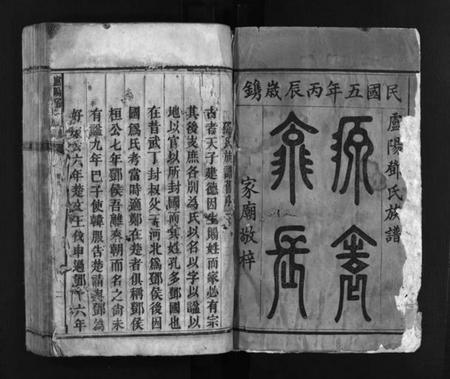 民國五年丙辰歲鐫
盧陽鄧氏族譜
源遠
流長
家廟敬梓
鄧氏族譜舊序
古者天子建德因生賜姓而家必有宗
其後支庶各別為氏以名以字以諡以
地以官以所封國而其姓孔多鄧國也
在昔武丁封叔父于河北為鄧侯後因
國為氏考當時適鄭在楚者俱稱鄧侯
桓公七年鄧侯吾離來朝而名之尚未
有諡九年巴子使韓服告楚請與鄧為
好 六年楚文王伐申過鄧 六年